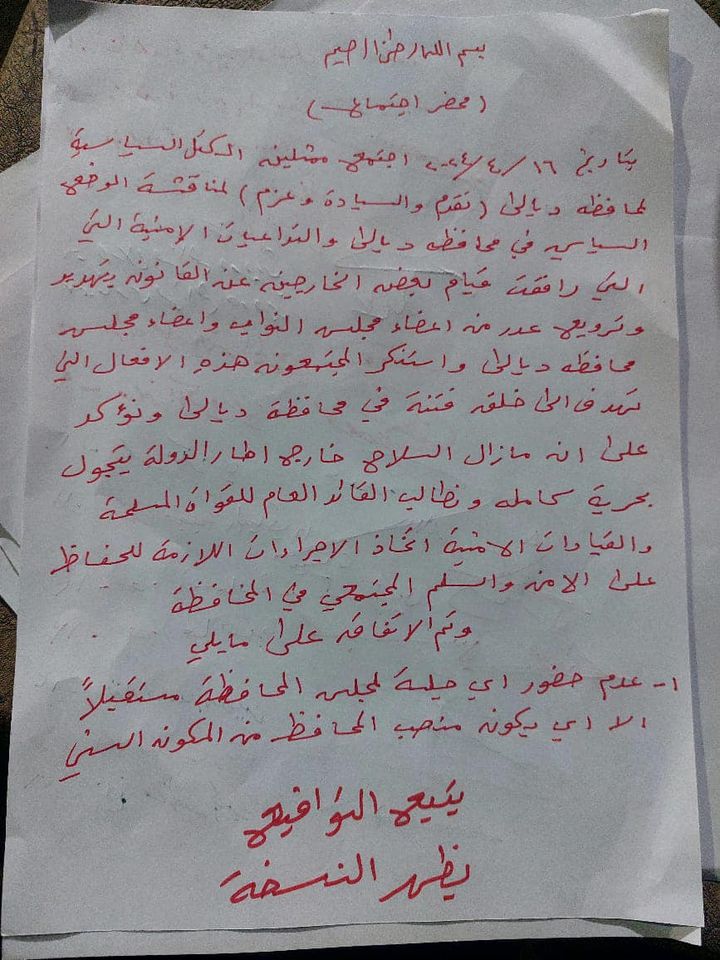 بسم الله الرحمن الرحيم
(محضر اجتماع)
بتاريخ ١٦/٤/٢٠٢٤ اجتمع ممثلين الكتل السياسية
لمحافظة ديالى (تقدم والسيادة وعزم) لمناقشة الوضع
السياسي في محافظة ديالى والتداعيات الامنية التي
التي رافقت قيام بعض الخارجين عن القانون بتهديد
وترويع عدد من اعضاء مجلس النواب واعضاء مجلس
محافظة ديالى واستنكر المجتمعون هذه الافعال التي
تهدف الى خلق فتنة في محافظة ديالى ونؤكد
على ان مازال السلاح خارج اطار الدولة يتجول
بحرية كاملة ونطالب القائد العام للقواة المسلحة
والقيادات الامنية اتخاذ الاجراءات اللازمة للحفاظ
على الامن والسلم المجتمعي في المحافظة
وتم الاتفاق على مايلي
١- عدم حضور اي جلسة لمجلس المحافظة مستقبلاً
الا اي يكون منصب المحافظ من المكون السني
يتبع التواقيع
بظهر النسخة